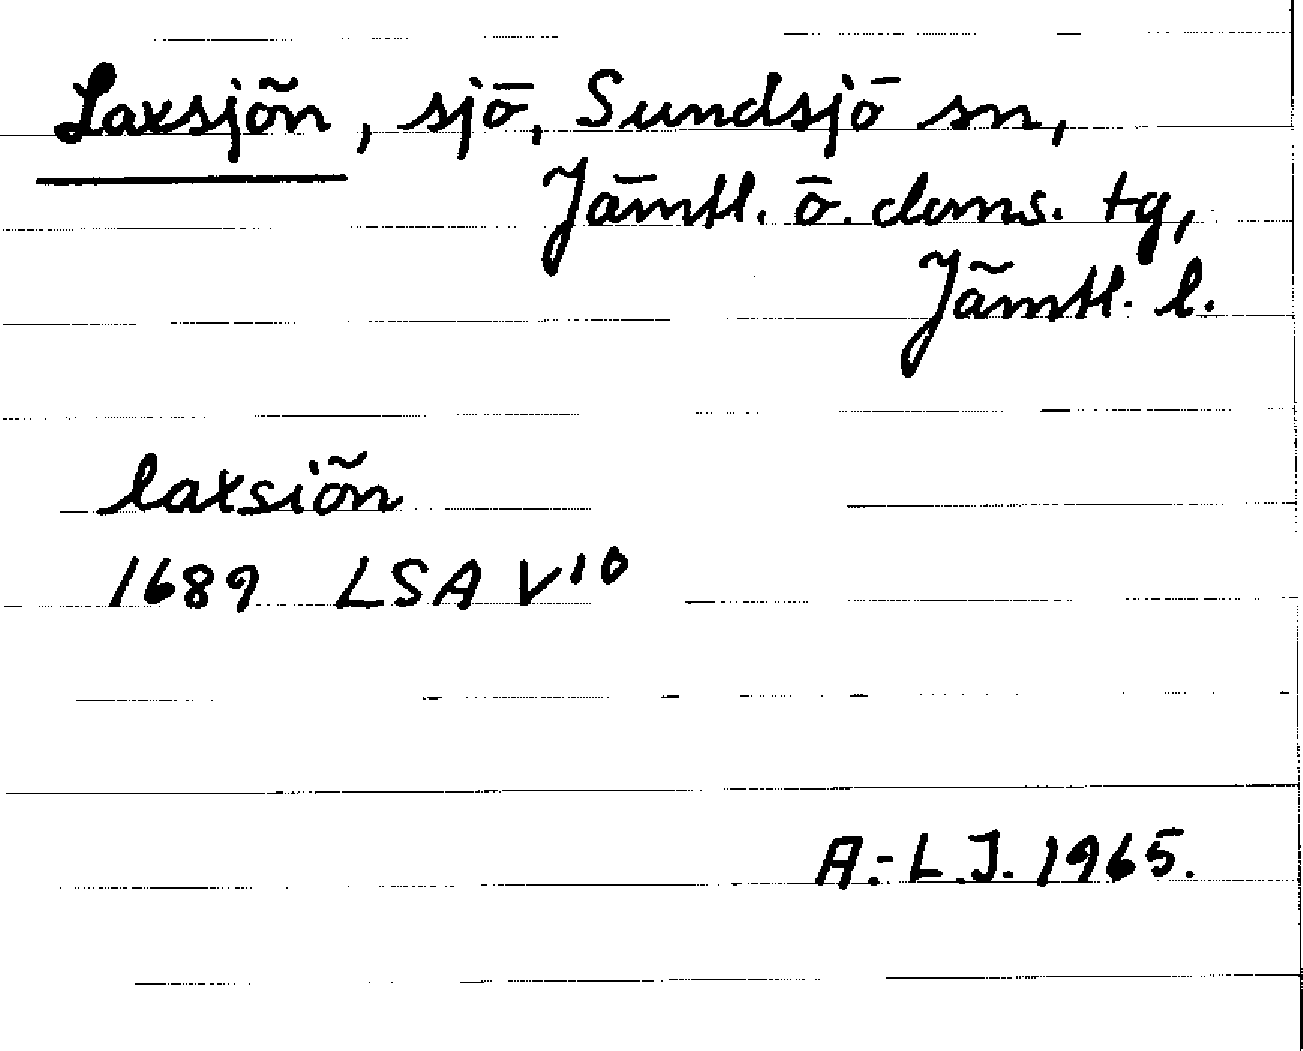 Laxsjön, sjö, Sundsjö sn,
Jämtl. ö. doms. tg,
Jämtl. l.
laxsiön
1689 LSA V10
A.-L.J. 1965.